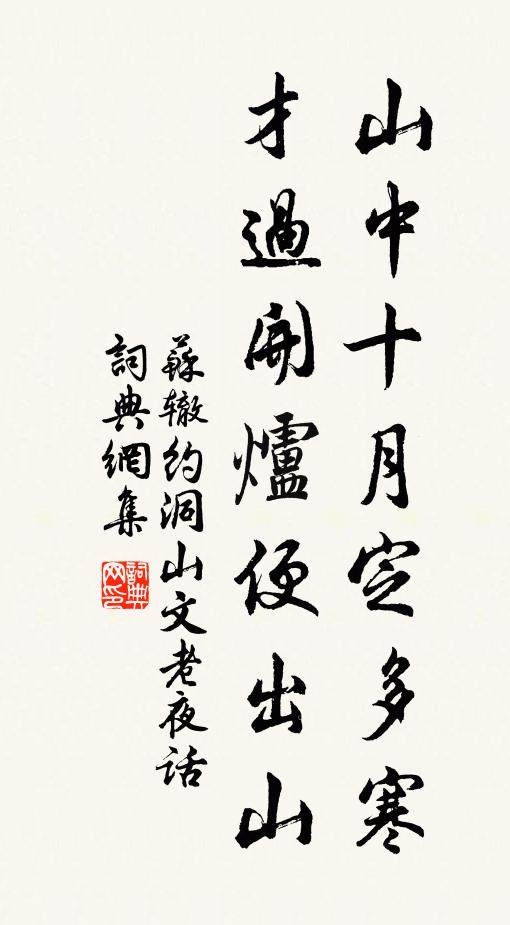 山中十月定多寒
才過開爐便出山
蘇辙約洞山文老夜话
詞典網集
詞典網印